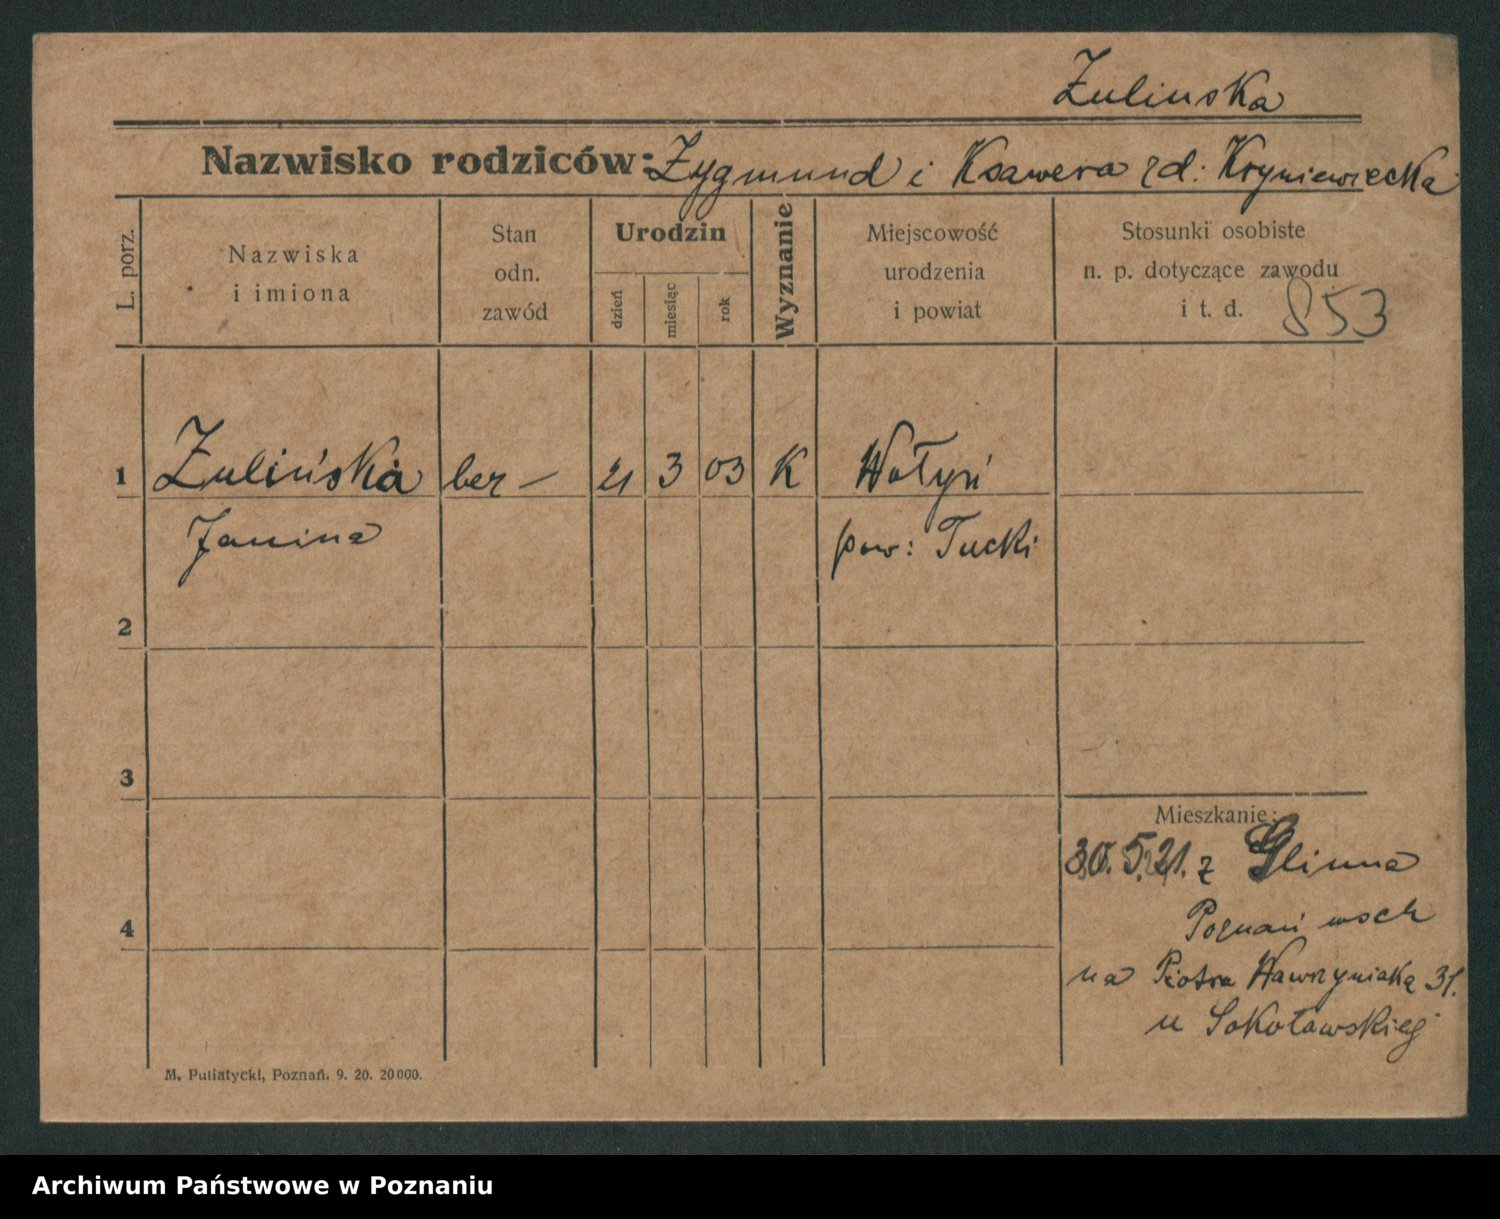 Żulinska
Nazwisko rodziców: Zygmund i Ksawera rd: Kryniewiecka
L. porz.
Nazwiska
i imiona
Stan
odn.
zawód
Urodzin
dzień
miesiąc
rok
Wyznanie
Miejscowość
urodzenia
i powiat
Stosunki osobiste
n. p. dotyczące zawodu
i t. d.
853
1 Żulińska ber – 21 3 03 K Wołyń
Janina pow: Łucki
2
3
Mieszkanie:
30.5.21. z Glinna
4
Poznań wsch
na Piotra Wawrzyniaka 31.
u Sokoławskiej
M. Putiatycki, Poznań. 9. 20. 20000.
Archiwum Państwowe w Poznaniu